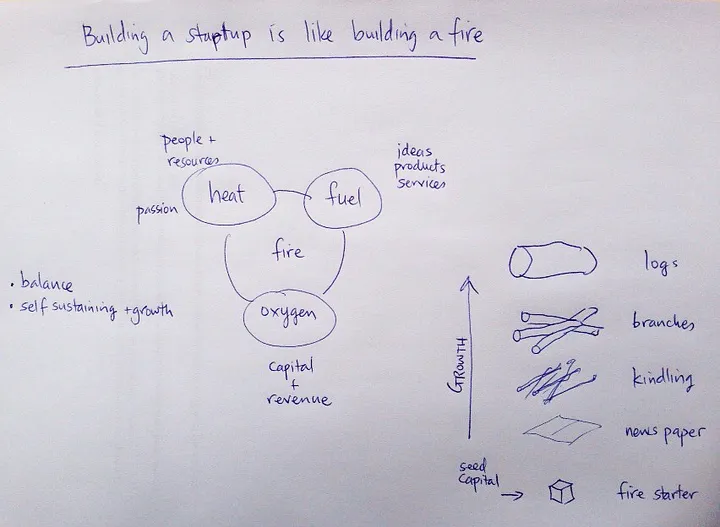 Building a startup is like building a fire
people +
resources
heat
passion
fuel
ideas
products
services
fire
oxygen
capital
+
revenue
. balance
. self sustaining + growth
GROWTH
logs
branches
kindling
news paper
seed
capital
fire starter